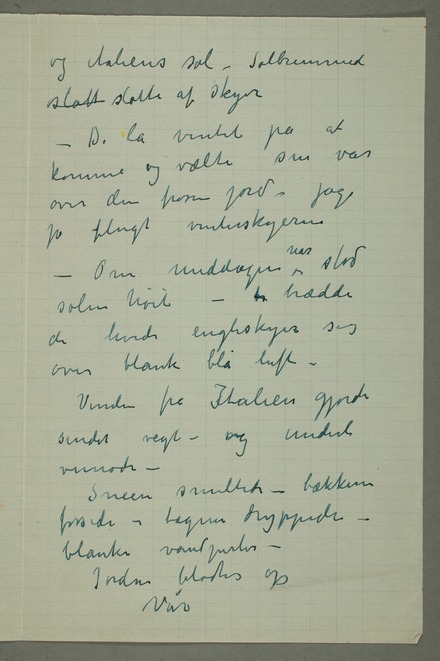 og Italiens sol – Solbrimmed
slott slotte af skyer
– De la ventet på at
komme og vælte sne var
over den frosne jord – jage
på flugt vinterskyerne
– Om middagen når stod
solen höit – bredde
de hvide engleskyer sig
over blank blå luft –
Vinden fra Italien gjorde
sindet vegt – og underli
vemode –
Sneen smeltede – bækkene
fossede – tagene dryppede –
blanke vandperler –
Jorden blødes op
Vår